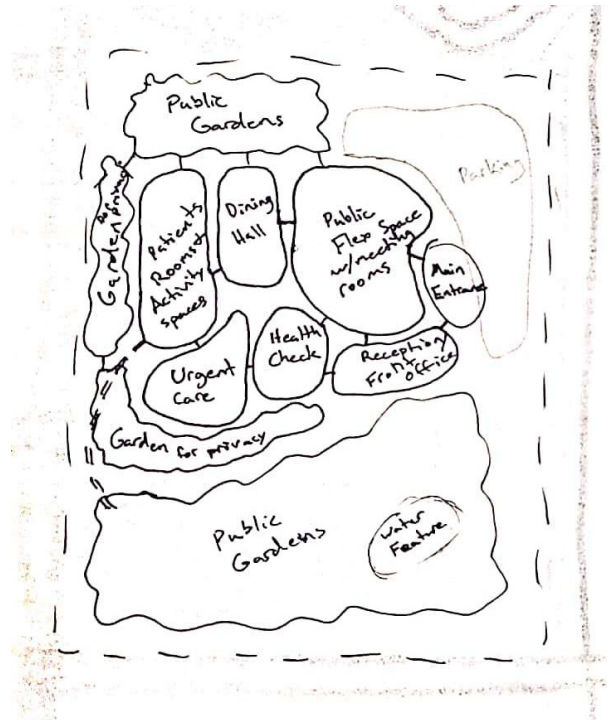 Public
Gardens
Parking
Garden for privacy
Patients
Rooms +
Activity
spaces
Dining
Hall
Public
Flex Space
w/meeting
rooms
Main
Entrance
Urgent
Care
Health
Check
Reception
Front
office
Garden for privacy
Public
Gardens
water
Feature